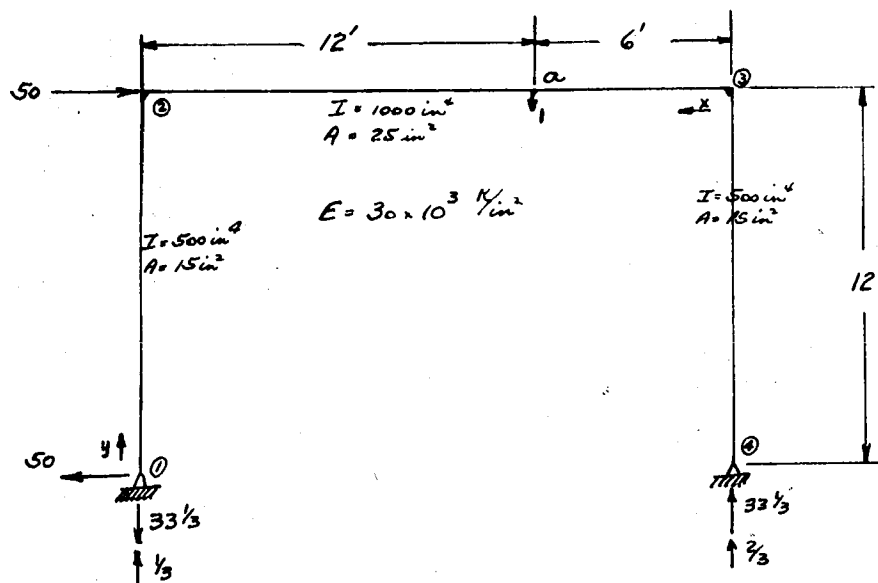 12'
6'
50
②
a
③
1
x
I = 1000 in⁴
A = 25 in²
E = 30 x 10³ K/in²
I = 500 in⁴
A = 15 in²
I = 500 in⁴
A = 15 in²
12
y
50
①
④
33 1/3
1/3
33 1/3
2/3